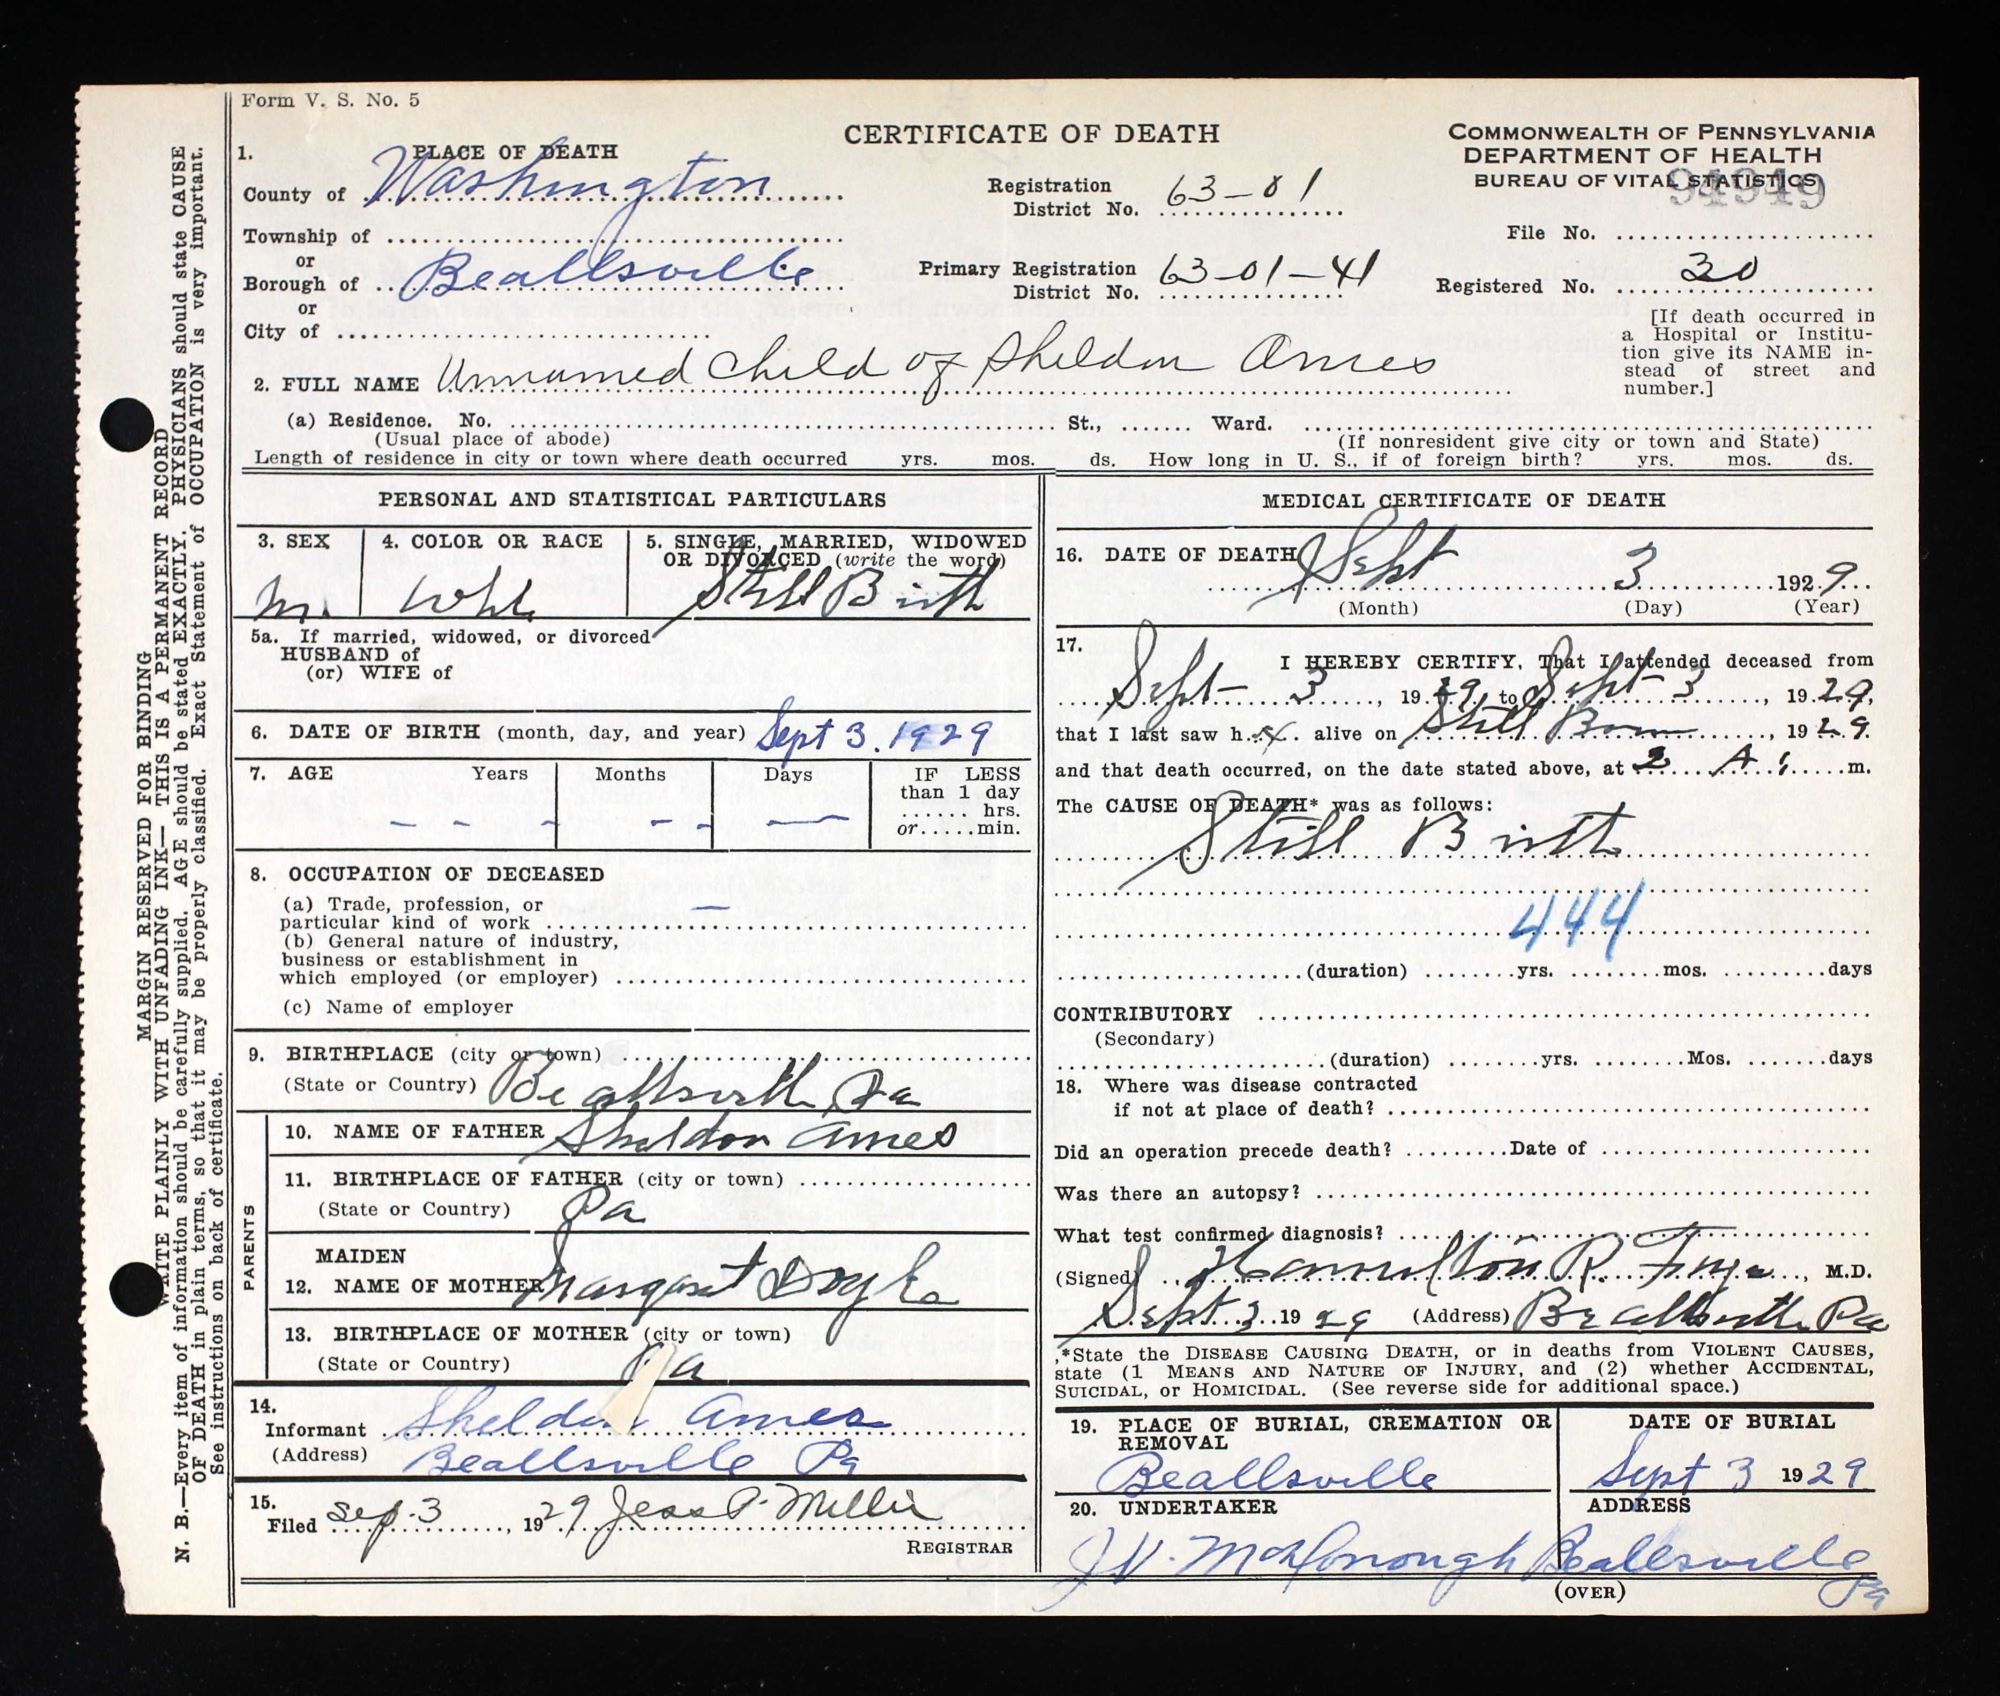 Form V. S. No. 5
CERTIFICATE OF DEATH
COMMONWEALTH OF PENNSYLVANIA
DEPARTMENT OF HEALTH
BUREAU OF VITAL STATISTICS
94949
1. PLACE OF DEATH
County of Washington
Registration District No. 63-01
Township of
File No.
or
Borough of Beallsville
Primary Registration District No. 63-01-41
Registered No. 30
or
City of
[If death occurred in
a Hospital or Institu-
tion give its NAME in-
stead of street and
number.]
2. FULL NAME Unnamed Child of Sheldon Ames
(a) Residence. No. St., Ward.
(Usual place of abode) (If nonresident give city or town and State)
Length of residence in city or town where death occurred yrs. mos. ds. How long in U. S., if of foreign birth? yrs. mos. ds.
PERSONAL AND STATISTICAL PARTICULARS
3. SEX
M.
4. COLOR OR RACE
5. SINGLE, MARRIED, WIDOWED
OR DIVORCED (write the word)
Still Birth
5a. If married, widowed, or divorced
HUSBAND of
(or) WIFE of
6. DATE OF BIRTH (month, day, and year) Sept 3. 1929
7. AGE Years Months Days IF LESS
than 1 day
hrs.
or min.
- - - - - —
8. OCCUPATION OF DECEASED
(a) Trade, profession, or
particular kind of work —
(b) General nature of industry,
business or establishment in
which employed (or employer)
(c) Name of employer
9. BIRTHPLACE (city or town)
(State or Country) Beallsville Pa
PARENTS
10. NAME OF FATHER Sheldon Ames
11. BIRTHPLACE OF FATHER (city or town)
(State or Country) Pa
MAIDEN
12. NAME OF MOTHER Margaret Doyle
13. BIRTHPLACE OF MOTHER (city or town)
(State or Country) Pa
14.
Informant Sheldon Ames
(Address) Beallsville Pa
15.
Filed Sep. 3, 1929 Jess P. Miller
REGISTRAR
MEDICAL CERTIFICATE OF DEATH
16. DATE OF DEATH Sept 3 1929
(Month) (Day) (Year)
17.
I HEREBY CERTIFY, That I attended deceased from
Sept 3, 1929, to Sept 3, 1929,
that I last saw h alive on Still Born, 1929
and that death occurred, on the date stated above, at 2 A. m.
The CAUSE OF DEATH* was as follows:
Still Birth
444
(duration) yrs. mos. days
CONTRIBUTORY
(Secondary)
(duration) yrs. Mos. days
18. Where was disease contracted
if not at place of death?
Did an operation precede death? Date of
Was there an autopsy?
What test confirmed diagnosis?
(Signed) Hamilton R. , M.D.
Sept 3 1929 (Address) Beallsville Pa
*State the DISEASE CAUSING DEATH, or in deaths from VIOLENT CAUSES,
state (1 MEANS AND NATURE OF INJURY, and (2) whether ACCIDENTAL,
SUICIDAL, or HOMICIDAL. (See reverse side for additional space.)
19. PLACE OF BURIAL, CREMATION OR
REMOVAL
Beallsville
DATE OF BURIAL
Sept 3 1929
20. UNDERTAKER
J.V. McDonough
ADDRESS
Beallsville Pa
(OVER)
MARGIN RESERVED FOR BINDING
WRITE PLAINLY WITH UNFADING INK— THIS IS A PERMANENT RECORD
N. B.—Every item of information should be carefully supplied. AGE should be stated EXACTLY. PHYSICIANS should state CAUSE
OF DEATH in plain terms, so that it may be properly classified. Exact Statement of OCCUPATION is very important.
See instructions on back of certificate.